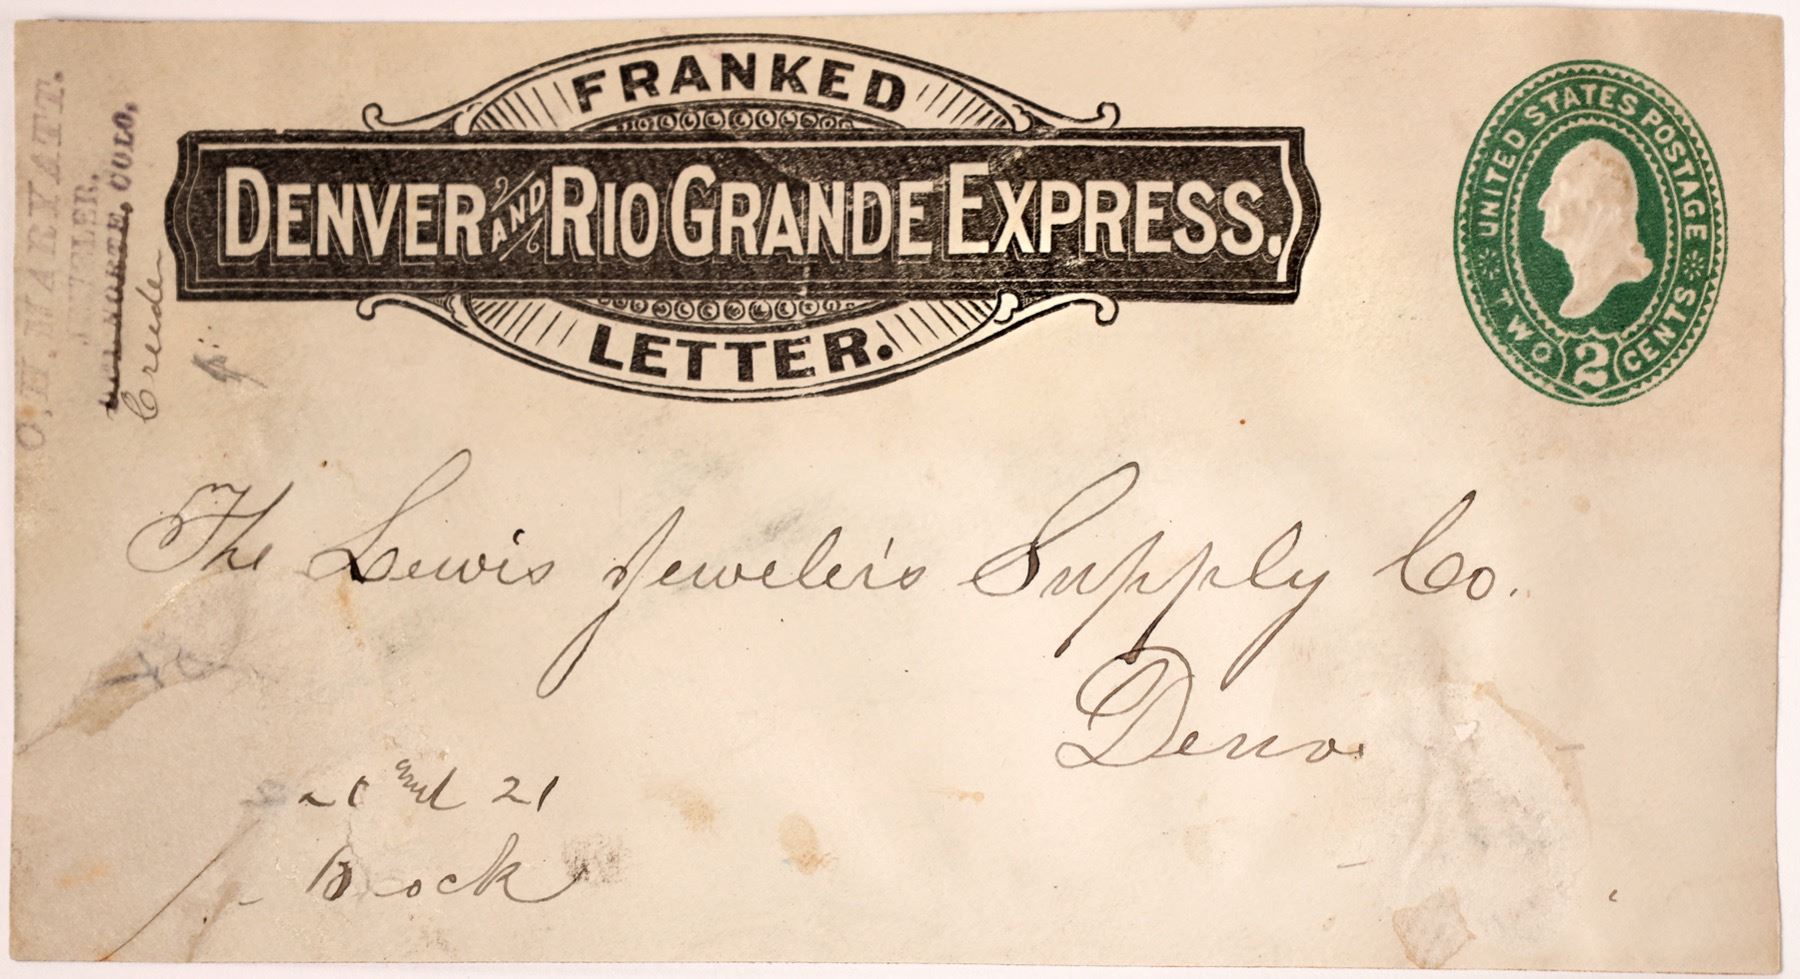 O, H. MARYATT.
JEWELER,
DEL NORTE, COLO,
Creede
FRANKED
DENVER AND RIO GRANDE EXPRESS.
LETTER.
UNITED STATES POSTAGE
TWO 2 CENTS
The Lewis Jeweler's Supply Co.
Denv.
and 21